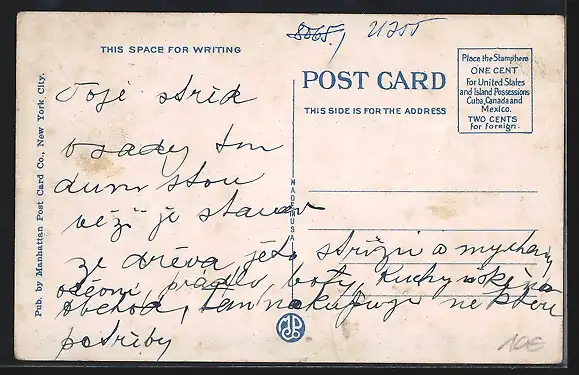 8065.)
21200
THIS SPACE FOR WRITING
POST CARD
THIS SIDE IS FOR THE ADDRESS
Place the Stamp here
ONE CENT
For United States
and Island Possessions
Cuba, Canada and
Mexico.
TWO CENTS
for foreign.
Pub. by Manhattan Post Card Co., New York City.
MADE IN U.S.A.
Toje
vsady ten
dum stou
věží je
ze dřeva jeto střižní a
oděoni, prádlo, boty,
obchod, Tam nakupuji
potřeby
10€